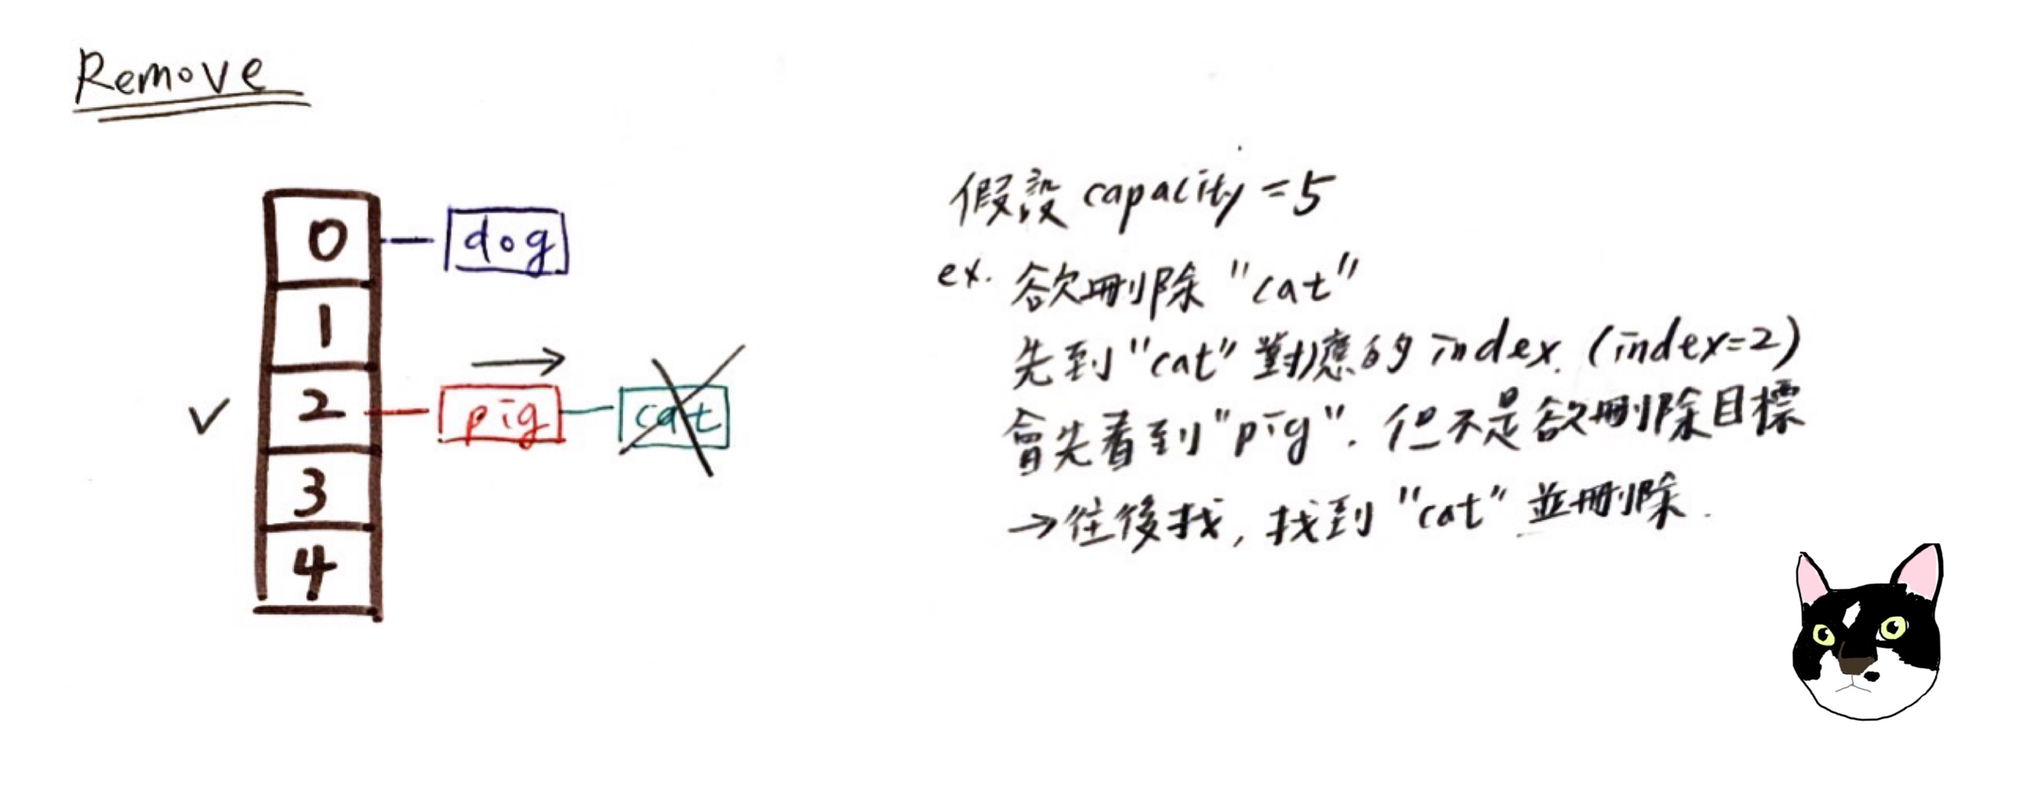 Remove
0
dog
1
2
pig
cat
3
4
假設 capacity = 5
ex. 欲刪除 "cat"
先到 "cat" 對應的 index. (index=2)
會先看到 "pig". 但不是欲刪除目標
→往後找, 找到 "cat" 並刪除.